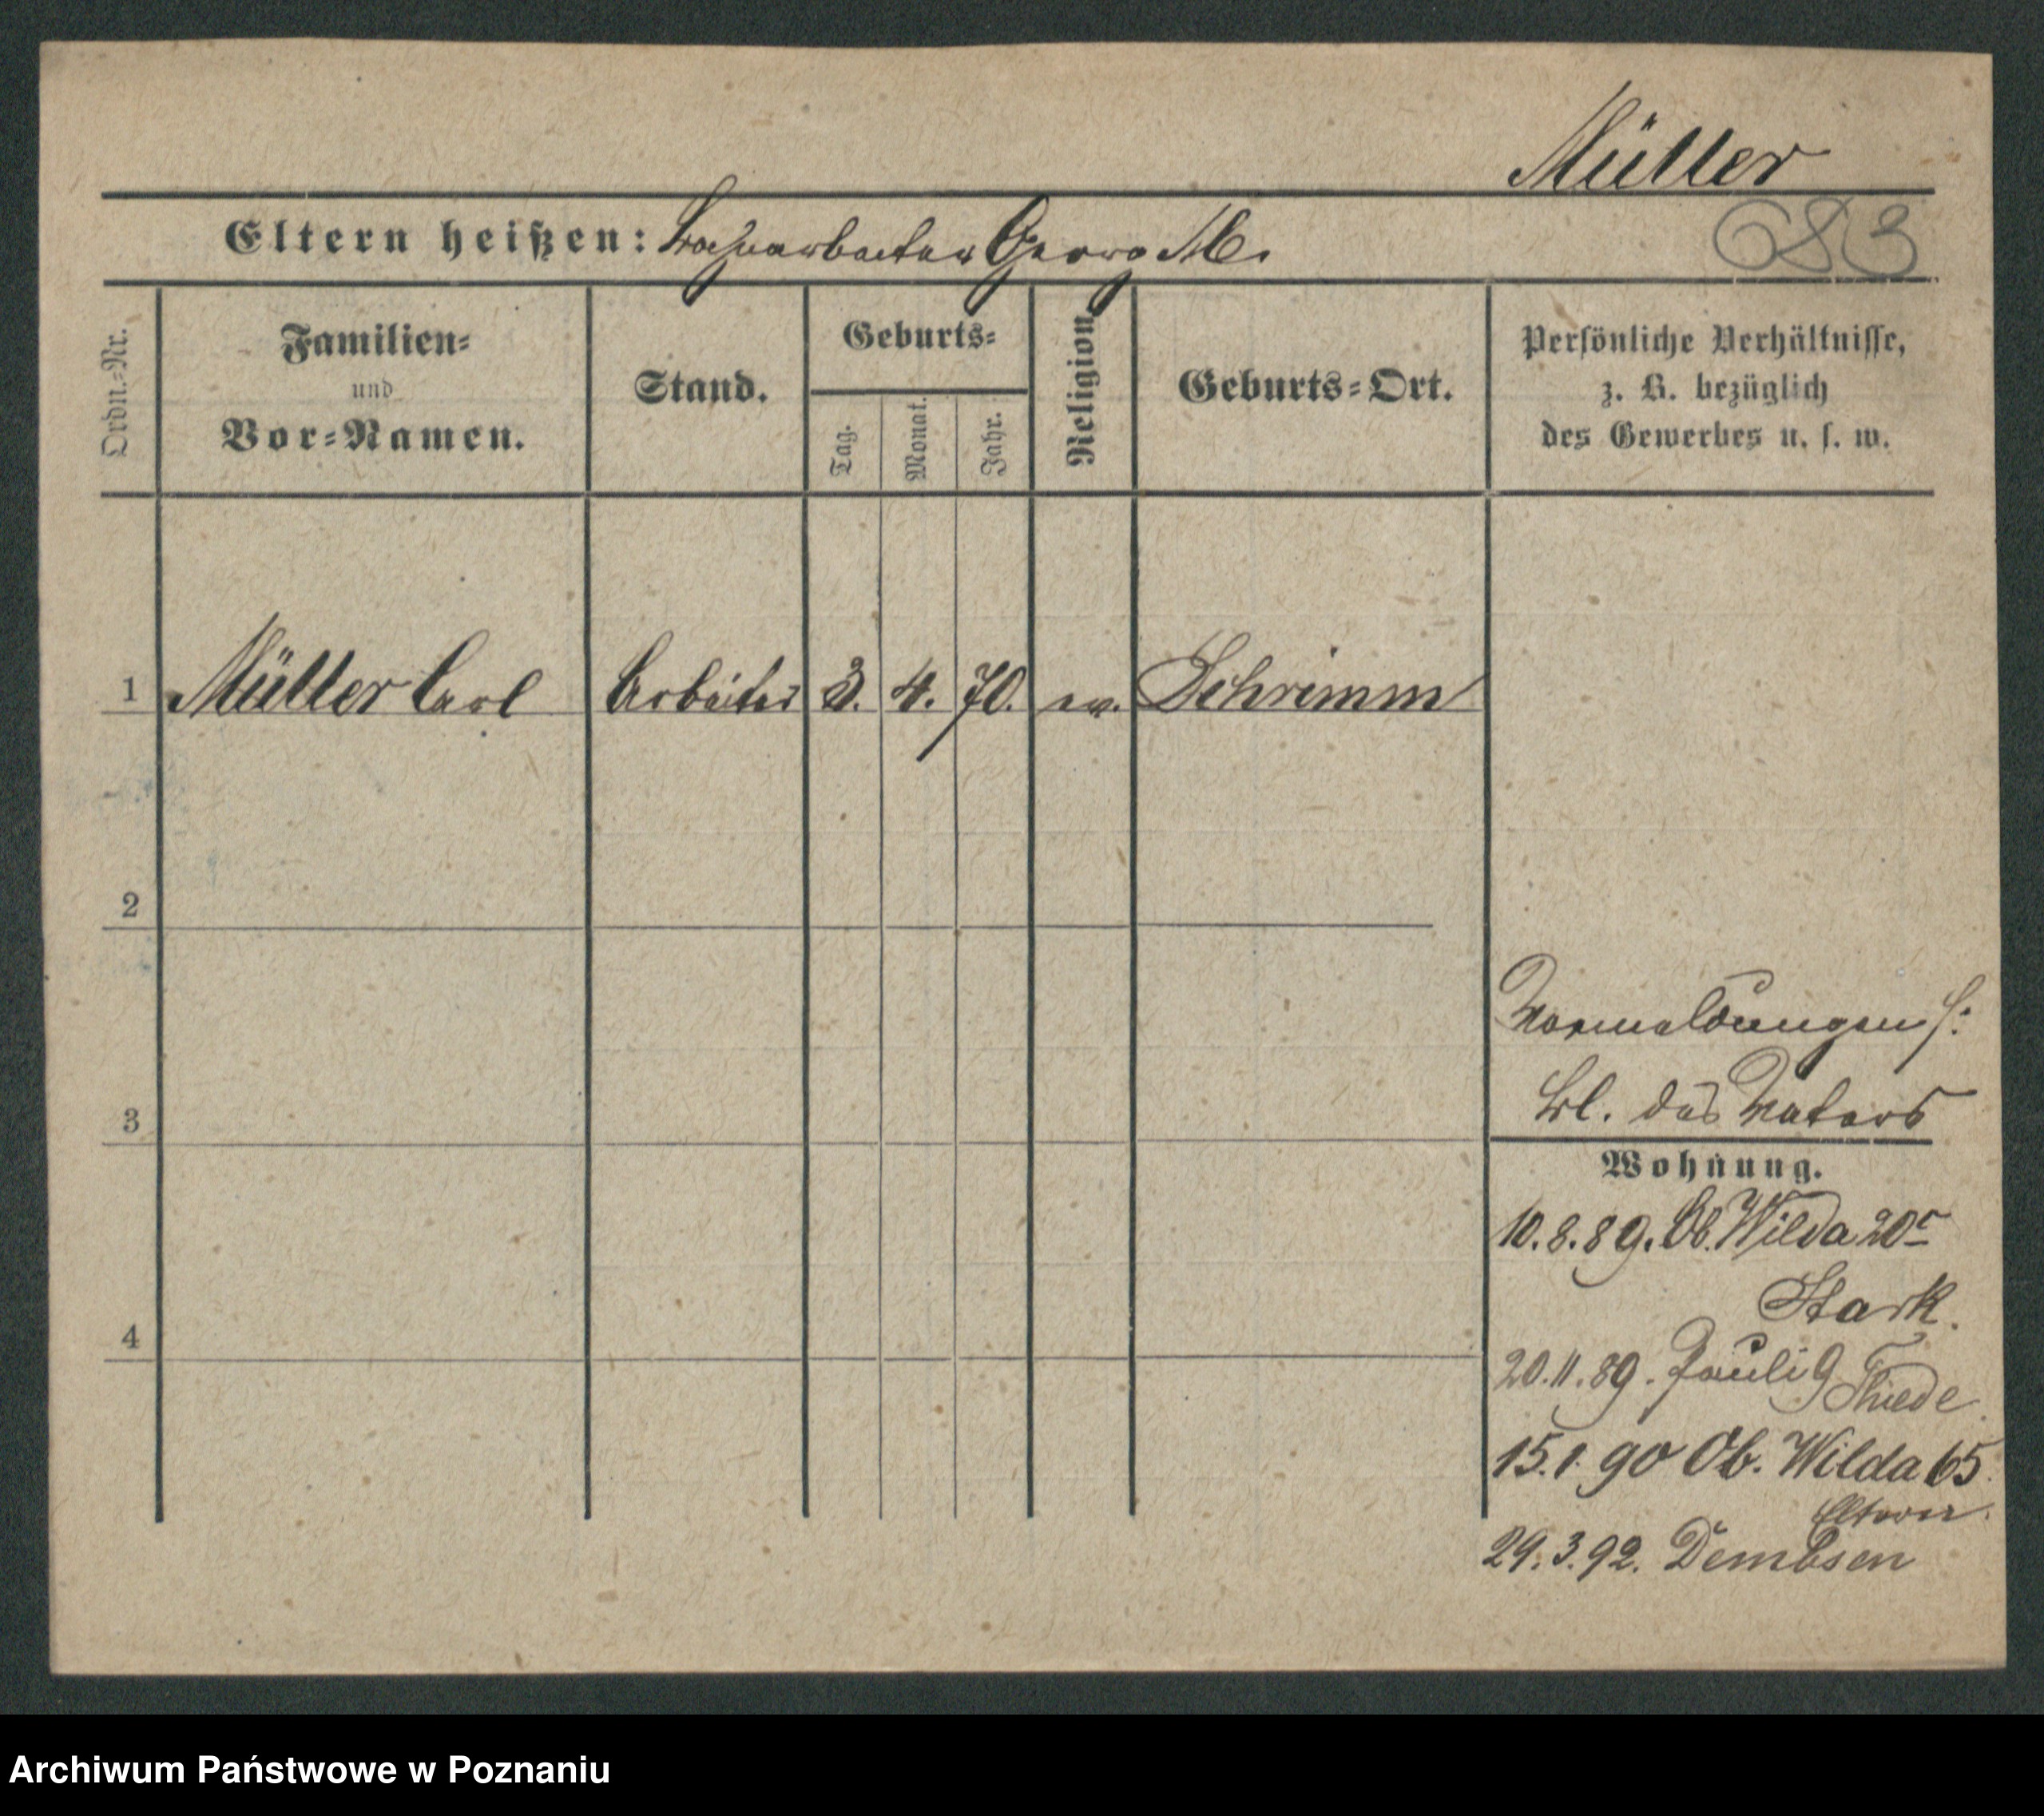 Müller
Eltern heißen: Bahnarbeiter Georg M.
683
Ordn.-Nr.
Familien-
und
Vor-Namen.
Stand.
Geburts-
Tag.
Monat.
Jahr.
Religion.
Geburts-Ort.
Persönliche Verhältnisse,
z. B. bezüglich
des Gewerbes u. s. w.
1 Müller Carl Arbeiter 3. 4. 70. ev. Schrimm
2
3
4
Vormeldungen s:
Bl. des Vaters
Wohnung.
10.8.89. Ob. Wilda 20
Stark.
20.11.89. Pauli 9 Thiede
15.1.90 Ob. Wilda 65.
Eltern.
29.3.92. Dembsen
Archiwum Państwowe w Poznaniu